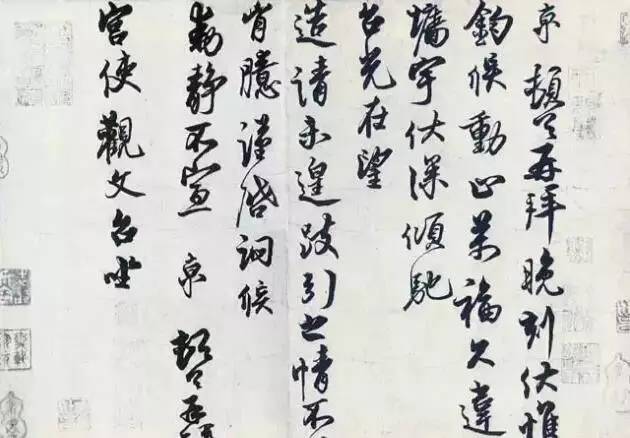 京 頓首再拜晚刻伏惟
鈞候動止萬福久違
牆宇伏深傾馳
台光在望
造請未遑跂引之情不
胷臆謹啓詗候
動靜不宣 京 頓首再
宮使觀文台坐